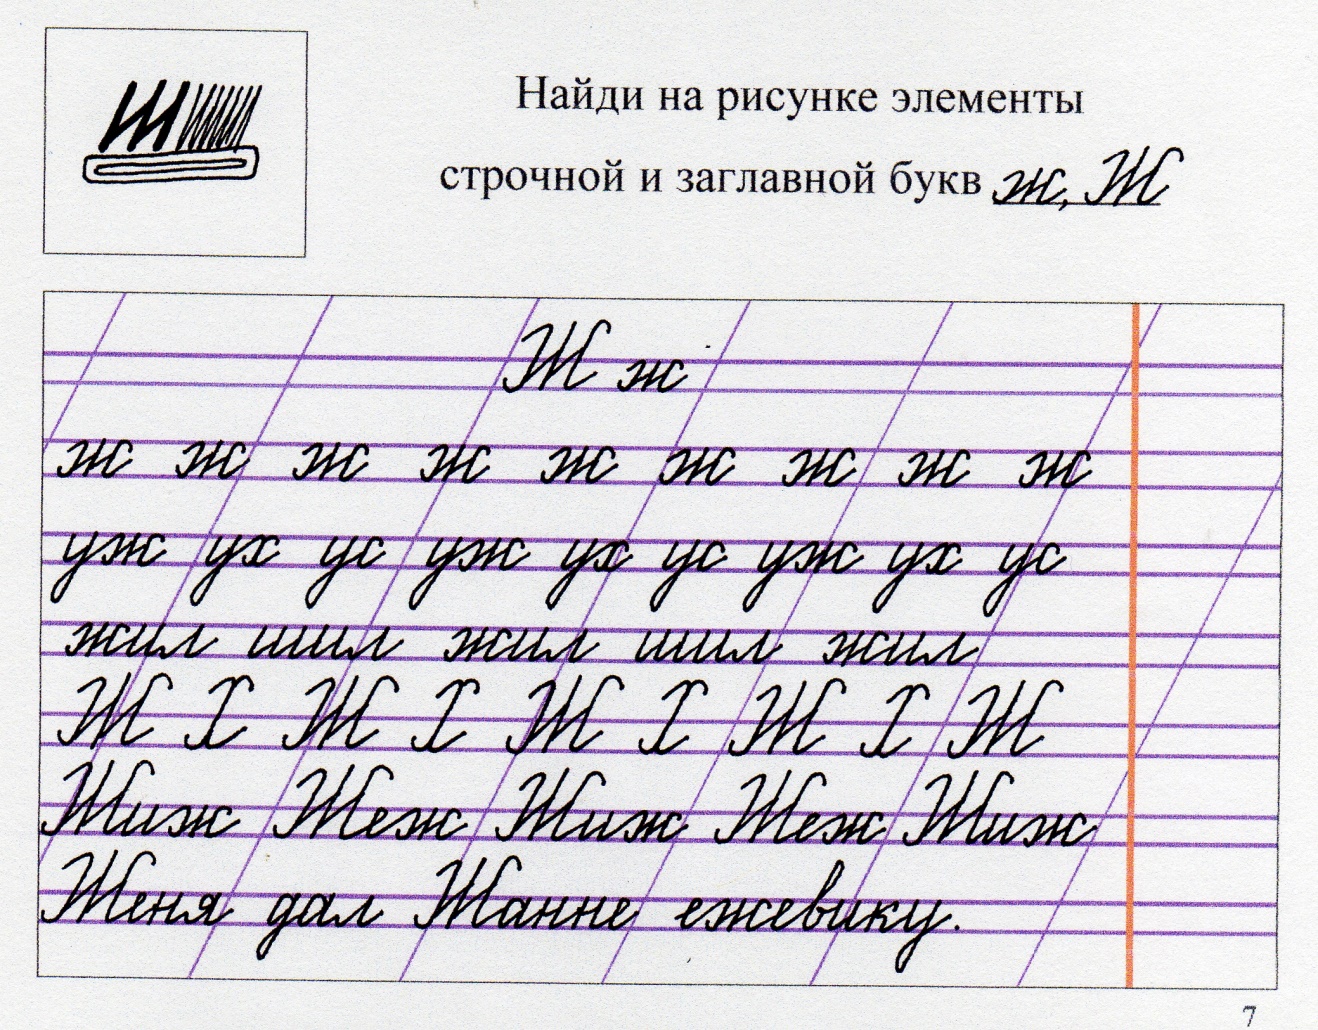 Найди на рисунке элементы
строчной и заглавной букв ж, Ж
Ж ж
ж ж ж ж ж ж ж ж ж
уж ух ус уж ух ус уж ух ус
жил шил жил шил жил
Ж Х Ж Х Ж Х Ж Х Ж
Жиж Жеж Жиж Жеж Жиж
Женя дал Жанне ежевику.
7